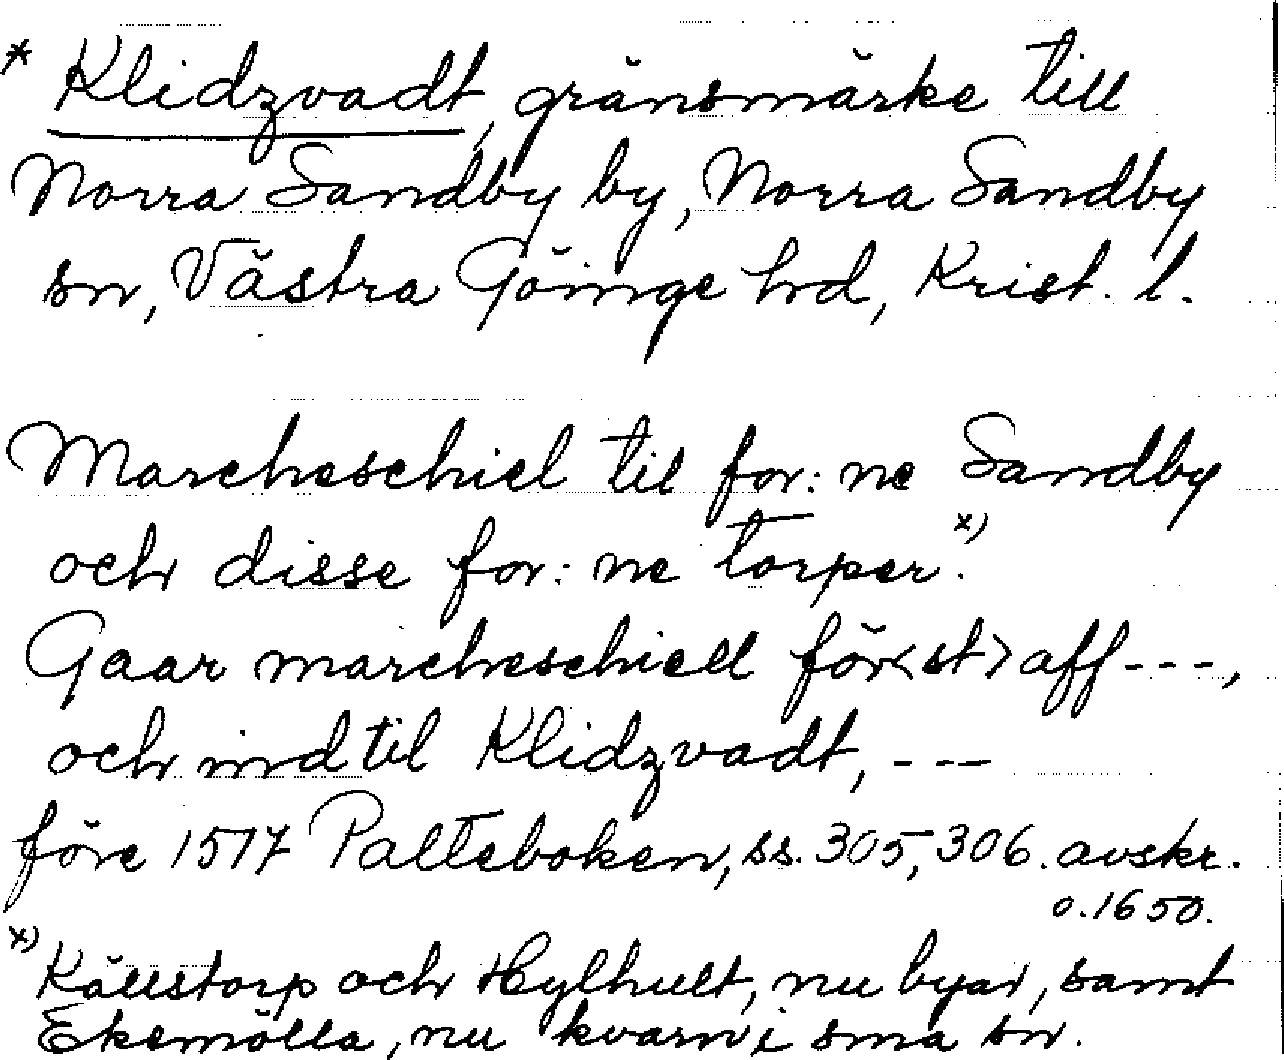 * Klidzvadt, gränsmärke till
Norra Sandby by, Norra Sandby
sn, Västra Göinge hd, Krist. l.
Marcheschiel til for: ne Sandby
och disse for: ne torper.x)
Gaar marcheschiell för<st> aff ---,
och ind til Klidzvadt, ---
före 1517 Palteboken, ss. 305, 306. avskr.
o. 1650.
x) Källstorp och Hylhult, nu byar, samt
Eksmölla, nu kvarn i sma sn.